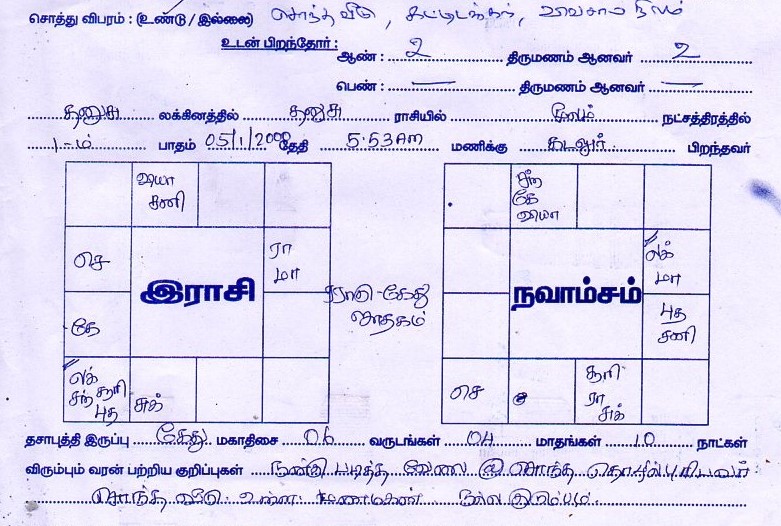 சொத்து விபரம் : (உண்டு / இல்லை) சொந்த வீடு , கட்டிடங்கள் , விவசாய நிலம்
உடன் பிறந்தோர் :
ஆண் : 2 திருமணம் ஆனவர் 2
பெண் : — திருமணம் ஆனவர் —
தனுசு லக்கினத்தில் தனுசு ராசியில் மூலம் நட்சத்திரத்தில்
1-ம் பாதம் 05/1/2000 தேதி 5:53 AM மணிக்கு கடலூர் பிறந்தவர்
வியா
சனி
செ
ரா
மா
இராசி
கே
லக்
சந் சூரி
புத
சுக்
ராகு-கேது
ஜாதகம்
சந்
கே
வியா
லக்
மா
நவாம்சம்
புத
சனி
செ
சூரி
ரா
சுக்
தசாபுத்தி இருப்பு கேது மகாதிசை 06 வருடங்கள் 04 மாதங்கள் 10 நாட்கள்
விரும்பும் வரன் பற்றிய குறிப்புகள் நன்கு படித்த வேலை (அ) சொந்த தொழில் புரியபவர்
சொந்த வீடு உள்ள மணமகன் நல்ல குடும்பம்.